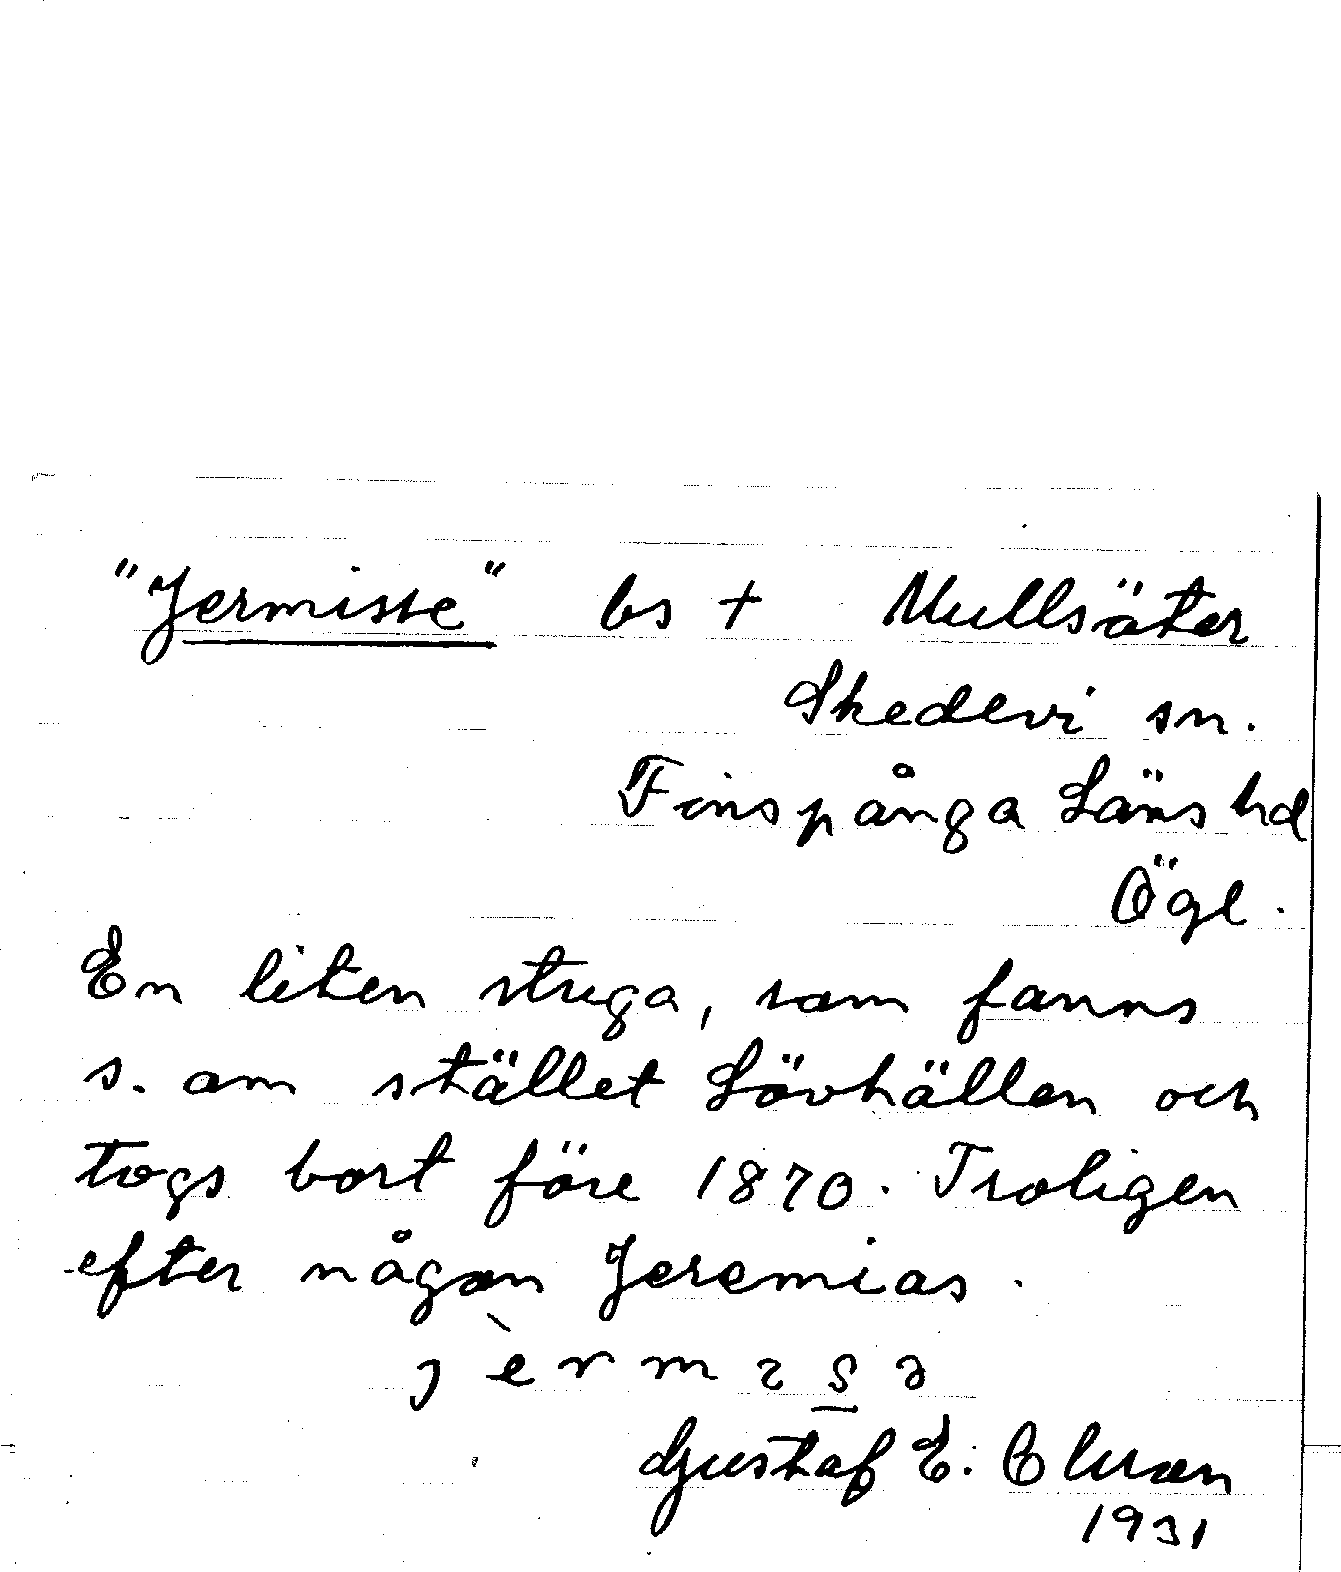 "Jermisse" bs † Mullsäter
Skedevi sn.
Finspånga Läns hd
Ögl.
En liten stuga, som fanns
s. om stället Lövhällen och
togs bort före 1870. Troligen
efter någon Jeremias.
Gustaf E:
1931